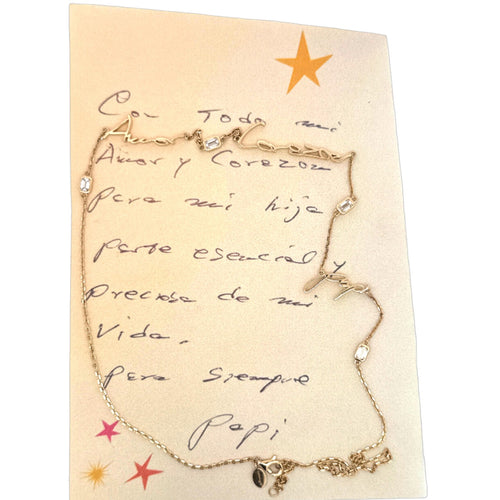 Con Todo mi
Amor Corazon
Amor y Corazon
para mi hija
parte esencial y
Papi
preciosa de mi
Vida.
para siempre
Papi